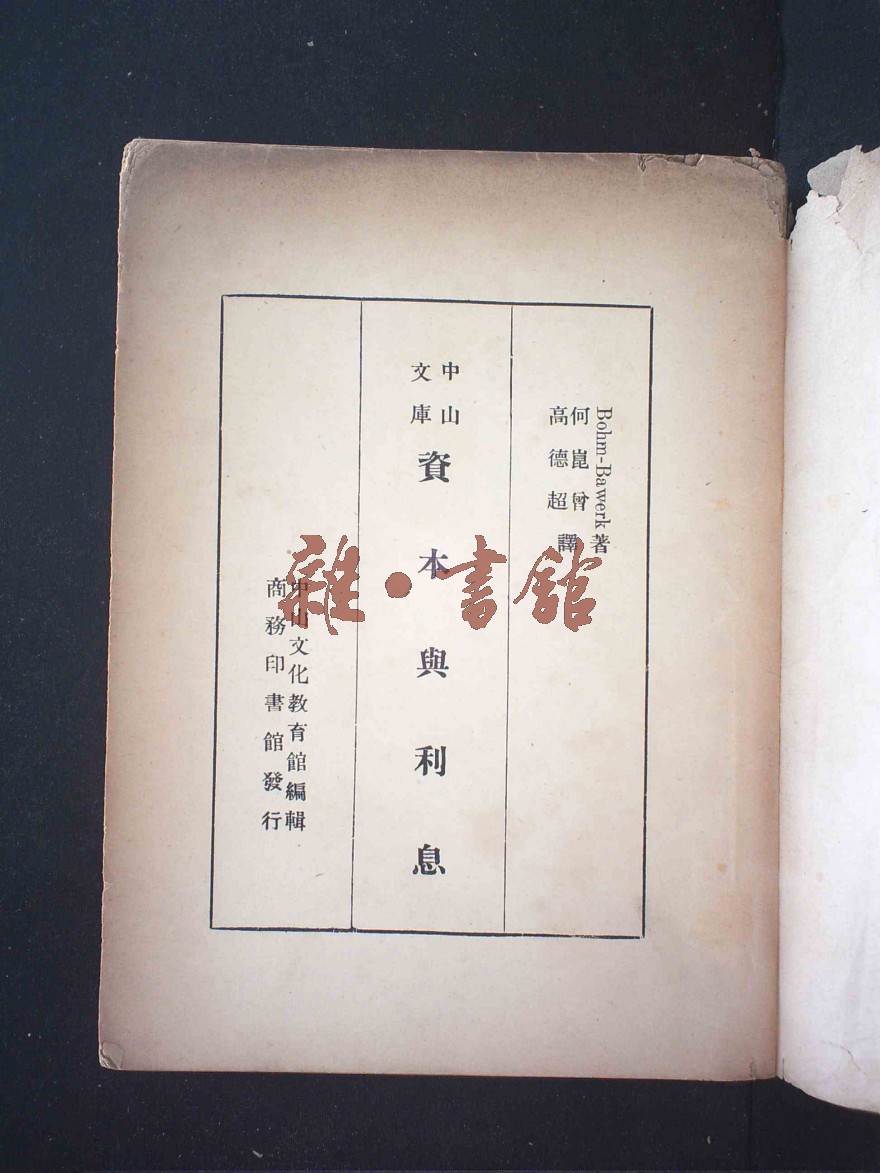 Bohm-Bawerk 著
何崑曾
高德超 譯
中山
文庫
資本與利息
中山文化教育館編輯
商務印書館發行
雜·書館